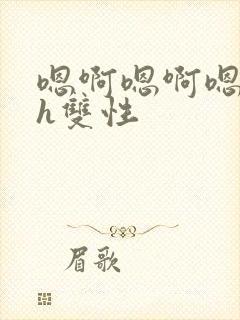 嗯啊嗯啊嗯
h雙性
眉歌